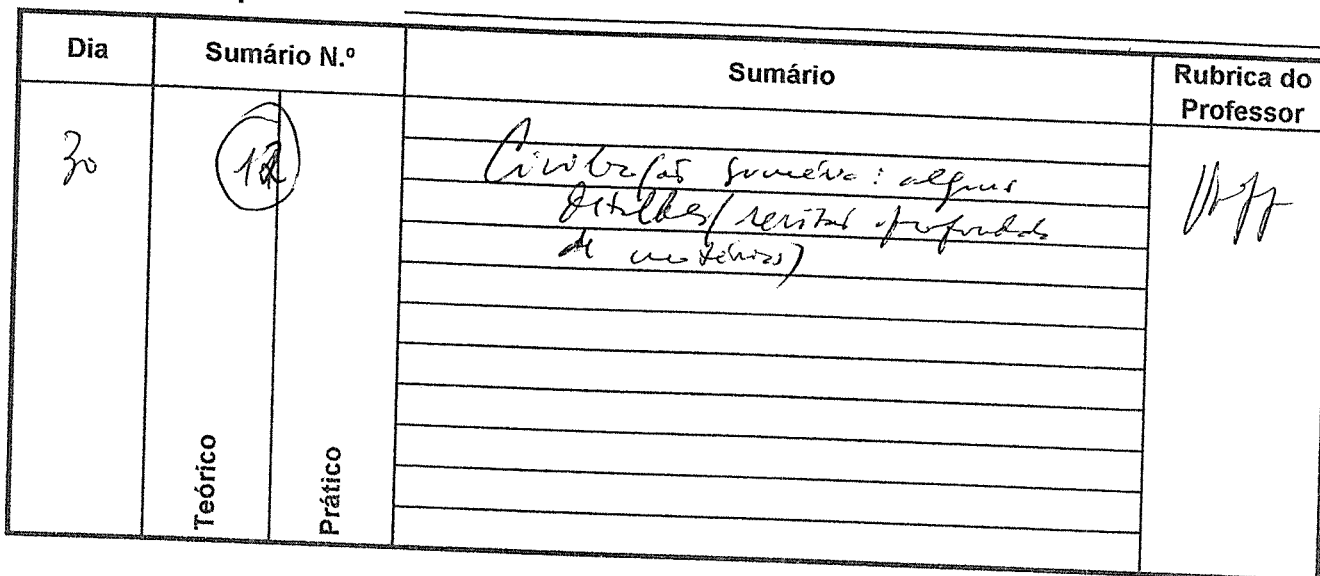 Dia Sumário N.º Sumário Rubrica do Professor
30 12 Civilização suméria: alguns
detalhes (revisão aprofundada
de matérias)
Teórico Prático